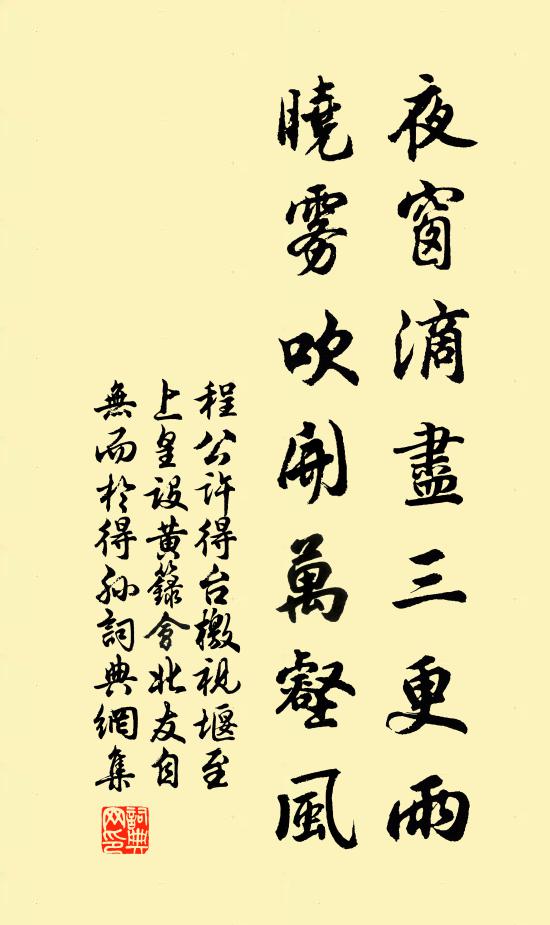 夜窗滴盡三更雨
曉雾吹開萬壑風
程公許得台檄視堰至
上皇設黄籙會北友自
無而於得孙詞典網集
詞典网印